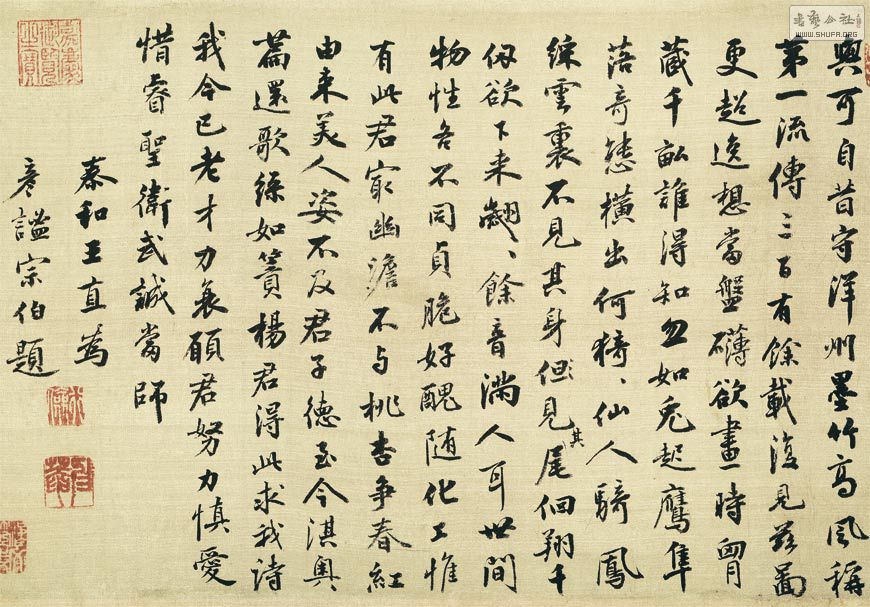 與可自昔守洋州墨竹高風稱
第一流傳三百有餘載復見茲啚
更超逸想當盤礴欲畫時胷
藏千畝誰得知忽如兔起鷹隼
落奇態橫出何猗〻仙人騎鳳
綵雲裏不見其身但見其尾佪翔千
仞欲下来翽〻餘音滿人耳世間
物性各不同貞脆好醜随化工惟
有此君㝡幽澹不与桃杏争春紅
由来美人姿不及君子德至今淇奥
篇還歌綠如簀楊君得此求我詩
我今已老才力衰願君努力慎愛
惜睿聖衛武誠當師
泰和王直為
彥謐宗伯題
嘉慶御覽之寶
書藝公社
WWW.SHUFA.ORG